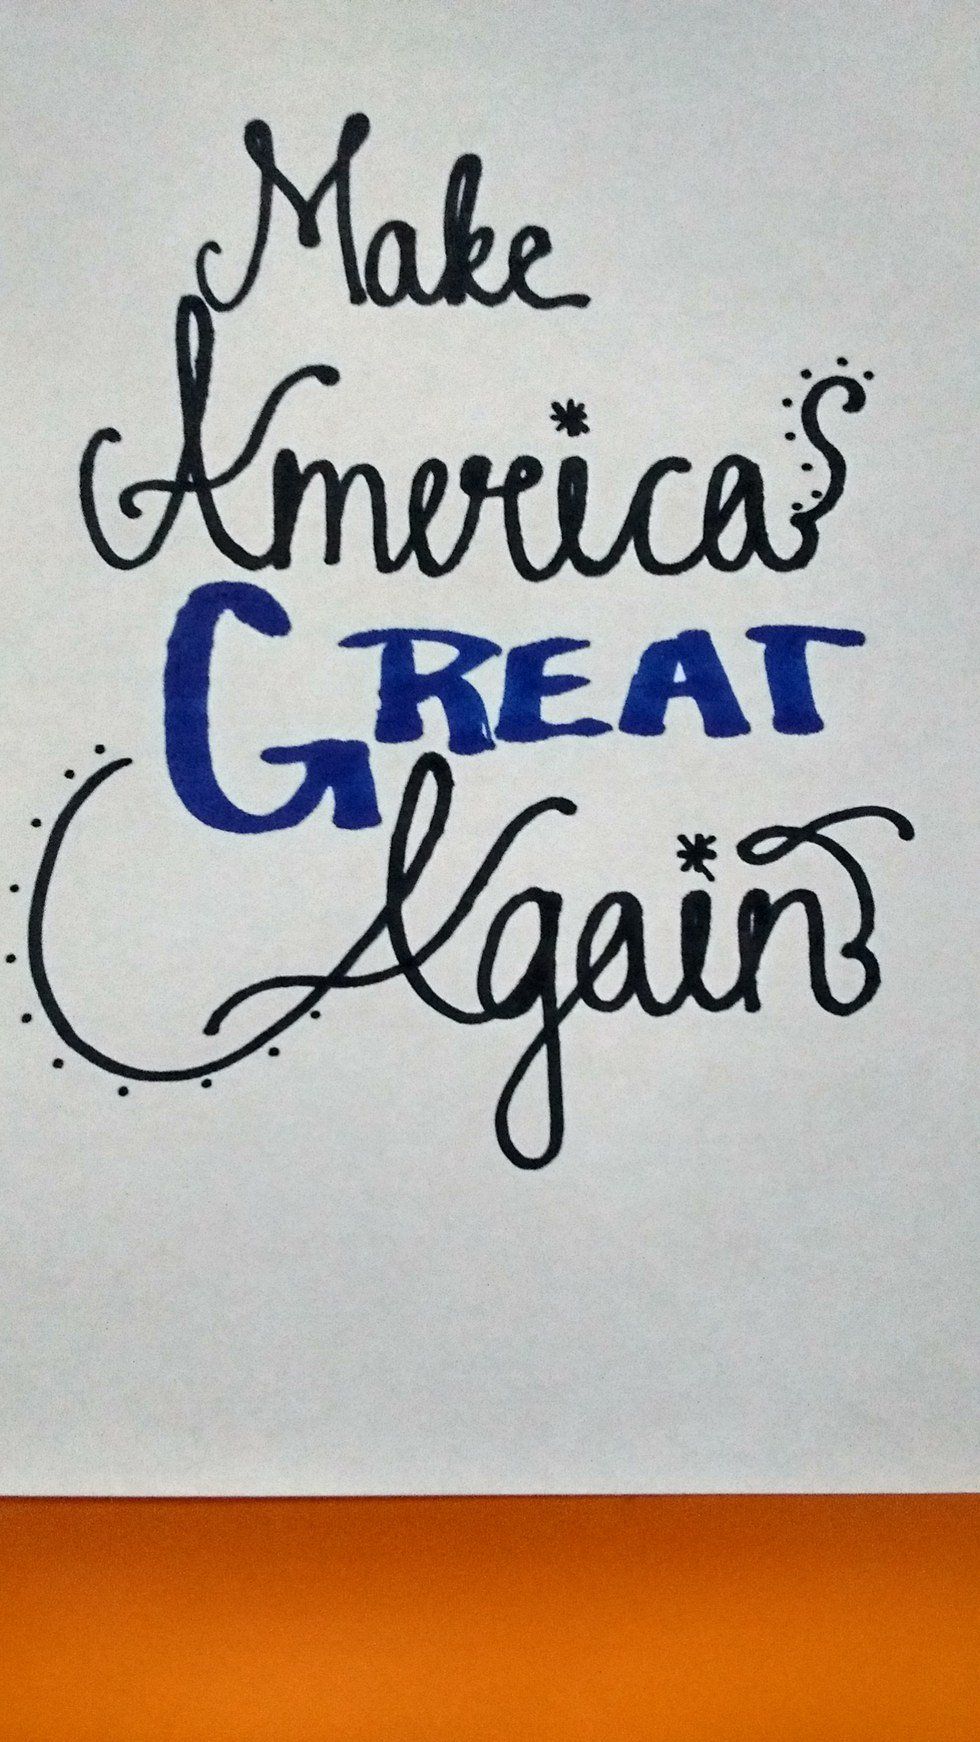 Make
America
GREAT
Again